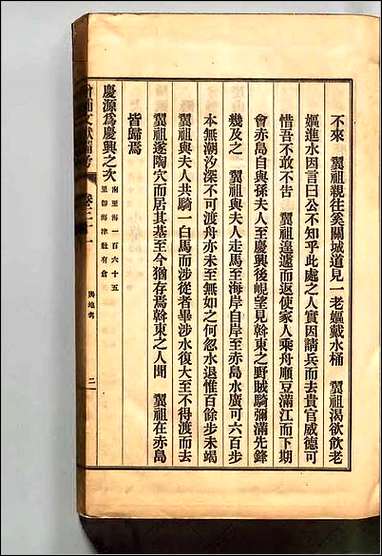 不來　翼祖親往奚關城道見一老嫗戴水桶　翼祖渴欲飮老
嫗進水因言曰公不知乎此處之人實因請兵而去貴官威德可
惜吾不敢不告　翼祖遑遽而返使家人乘舟順豆滿江而下期
會赤島自與孫夫人至慶興後峴望見斡東之野賊騎彌滿先鋒
幾及之　翼祖與夫人走馬至海岸自岸至赤島水廣可六百步
本無潮汐深不可渡舟亦未至無如之何忽水退惟百餘步未竭
翼祖與夫人共騎一白馬而涉從者畢涉水復大至不得渡而去
翼祖遂陶穴而居其基至今猶存焉斡東之人聞　翼祖在赤島
皆歸焉
慶源爲慶興之次
南至海一百六十五
里御海津社有倉
增補文獻備考
卷三十一
輿地考
二